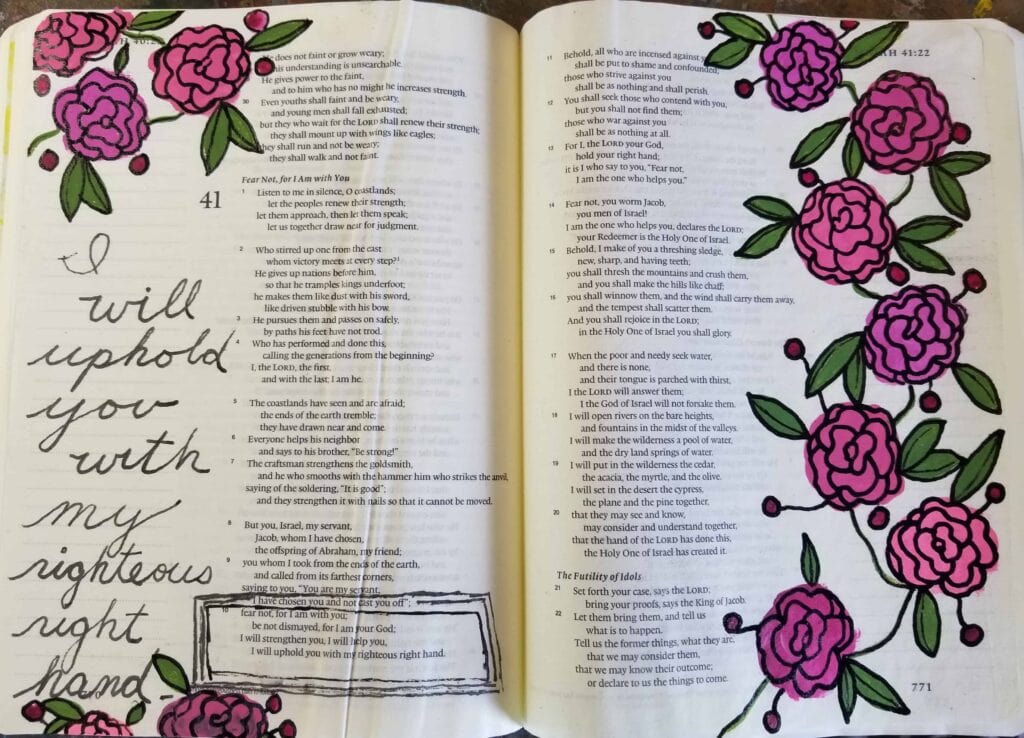 I
will
uphold
you
with
my
righteous
right
hand
He does not faint or grow weary;
his understanding is unsearchable.
He gives power to the faint,
and to him who has no might he increases strength.
30 Even youths shall faint and be weary,
and young men shall fall exhausted;
but they who wait for the LORD shall renew their strength;
they shall mount up with wings like eagles;
they shall run and not be weary;
they shall walk and not faint.
Fear Not, for I Am with You
41
1 Listen to me in silence, O coastlands;
let the peoples renew their strength;
let them approach, then let them speak;
let us together draw near for judgment.
2 Who stirred up one from the east
whom victory meets at every step?¹
He gives up nations before him,
so that he tramples kings underfoot;
he makes them like dust with his sword,
like driven stubble with his bow.
3 He pursues them and passes on safely,
by paths his feet have not trod.
4 Who has performed and done this,
calling the generations from the beginning?
I, the LORD, the first,
and with the last; I am he.
5 The coastlands have seen and are afraid;
the ends of the earth tremble;
they have drawn near and come.
6 Everyone helps his neighbor
and says to his brother, "Be strong!"
7 The craftsman strengthens the goldsmith,
and he who smooths with the hammer him who strikes the anvil,
saying of the soldering, "It is good";
and they strengthen it with nails so that it cannot be moved.
8 But you, Israel, my servant,
Jacob, whom I have chosen,
the offspring of Abraham, my friend;
9 you whom I took from the ends of the earth,
and called from its farthest corners,
saying to you, "You are my servant,
I have chosen you and not cast you off";
10 fear not, for I am with you;
be not dismayed, for I am your God;
I will strengthen you, I will help you,
I will uphold you with my righteous right hand.
41:22
11 Behold, all who are incensed against
shall be put to shame and confounded;
those who strive against you
shall be as nothing and shall perish.
12 You shall seek those who contend with you,
but you shall not find them;
those who war against you
shall be as nothing at all.
13 For I, the LORD your God,
hold your right hand;
it is I who say to you, "Fear not,
I am the one who helps you."
14 Fear not, you worm Jacob,
you men of Israel!
I am the one who helps you, declares the LORD;
your Redeemer is the Holy One of Israel.
15 Behold, I make of you a threshing sledge,
new, sharp, and having teeth;
you shall thresh the mountains and crush them,
and you shall make the hills like chaff;
16 you shall winnow them, and the wind shall carry them away,
and the tempest shall scatter them.
And you shall rejoice in the LORD;
in the Holy One of Israel you shall glory.
17 When the poor and needy seek water,
and there is none,
and their tongue is parched with thirst,
I the LORD will answer them;
I the God of Israel will not forsake them.
18 I will open rivers on the bare heights,
and fountains in the midst of the valleys.
I will make the wilderness a pool of water,
and the dry land springs of water.
19 I will put in the wilderness the cedar,
the acacia, the myrtle, and the olive.
I will set in the desert the cypress,
the plane and the pine together,
20 that they may see and know,
may consider and understand together,
that the hand of the LORD has done this,
the Holy One of Israel has created it.
The Futility of Idols
21 Set forth your case, says the LORD;
bring your proofs, says the King of Jacob.
22 Let them bring them, and tell us
what is to happen.
Tell us the former things, what they are,
that we may consider them,
that we may know their outcome;
or declare to us the things to come.
771